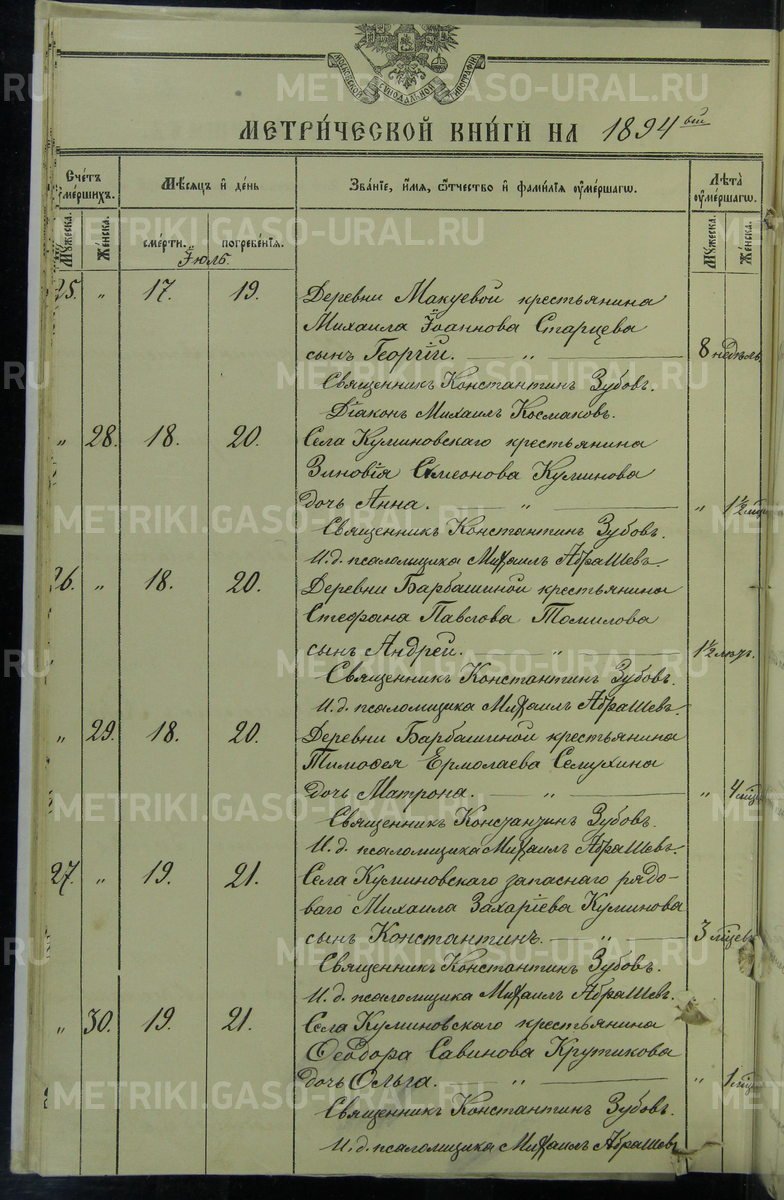 МОСКОВСКОЙ СѴНОДАЛЬНОЙ ТИПОГРАФІИ
МЕТРИ́ЧЕСКОЙ КНИ́ГИ НА 1894 ый
Сче́тъ ᲂу҆ме́ршихъ. Мѣ́сѧцъ и҆ де́нь Зва́нїе, и҆́мѧ, ѻ҆́тчество и҆ фами́лїѧ ᲂу҆ме́ршагѡ. Лѣ́та ᲂу҆ме́ршагѡ.
Мꙋ́жеска. Же́нска. сме́рти. погребе́нїѧ. Мꙋ́жеска. Же́нска.
Іюль.
25. " 17. 19. Деревни Макуевой крестьянина
Михаила Іоаннова Старцева
сынъ Георгій. — " — 8 недѣль
Священникъ Константинъ Зубовъ.
Діаконъ Михаилъ Космаковъ.
" 28. 18. 20. Села Куминовскаго крестьянина
Зиновія Симеонова Куминова
дочь Анна. — " — " 1½
Священникъ Константинъ Зубовъ.
И. д. псаломщика Михаилъ Абрашевъ.
26. " 18. 20. Деревни Барбашиной крестьянина
Стефана Павлова Томилова
сынъ Андрей. — " — 1½
Священникъ Константинъ Зубовъ.
И. д. псаломщика Михаилъ Абрашевъ.
" 29. 18. 20. Деревни Барбашиной крестьянина
Тимофея Ермолаева Семухина
дочь Матрона. — " — " 4
Священникъ Константинъ Зубовъ.
И. д. псаломщика Михаилъ Абрашевъ.
27. " 19. 21. Села Куминовскаго запаснаго рядо-
ваго Михаила Захаріева Куминова
сынъ Константинъ. — " — 3
Священникъ Константинъ Зубовъ.
И. д. псаломщика Михаилъ Абрашевъ.
" 30. 19. 21. Села Куминовскаго крестьянина
Ѳеодора Савинова Крутикова
дочь Ольга. — " — " 1
Священникъ Константинъ Зубовъ.
И. д. псаломщика Михаилъ Абрашевъ
METRIKI.GASO-URAL.RU